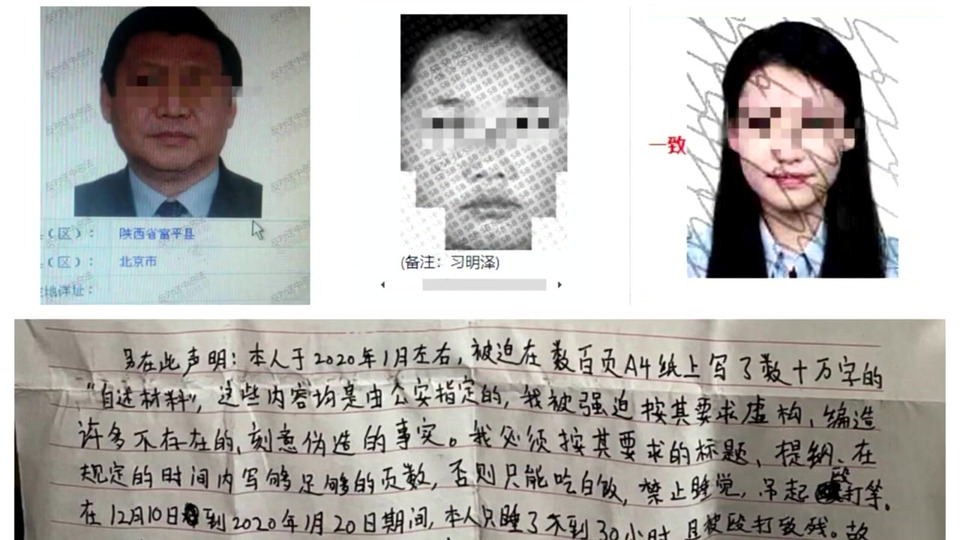 （区）： 陕西省富平县
（区）： 北京市
地详址：
(备注：习明泽)
一致
另在此声明：本人于2020年1月左右，被迫在数百页A4纸上写了数十万字的
“自述材料”，这些内容均是由公安指定的，我被强迫按其要求虚构、编造
许多不存在的、刻意伪造的事实。我必须按其要求的标题、提纲、在
规定的时间内写够足够的页数，否则只能吃白饭，禁止睡觉，吊起殴打等。
在12月10日到2020年1月20日期间，本人只睡了不到30小时，且被殴打致残。故